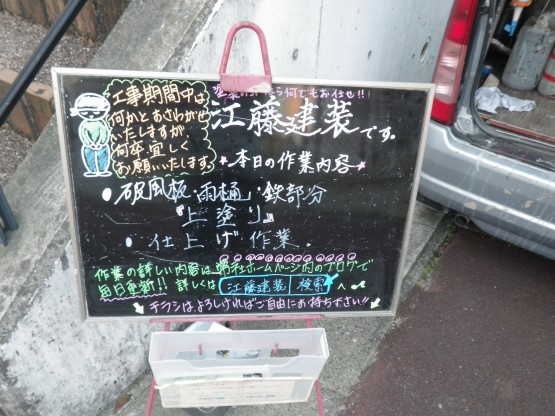 工事期間中は
何かとおさわがせ
いたしますが
何卒宜しく
お願いいたします。
何でもお任せ!!
江藤建装です。
本日の作業内容
・破風板・雨樋・鉄部分
『上塗り』
・仕上げ作業.
作業の詳しい内容は弊社ホームページ内のブログで
毎日更新!! 詳しくは 江藤建装 検索 へ♪
チラシは、よろしければご自由にお持ち下さい!!